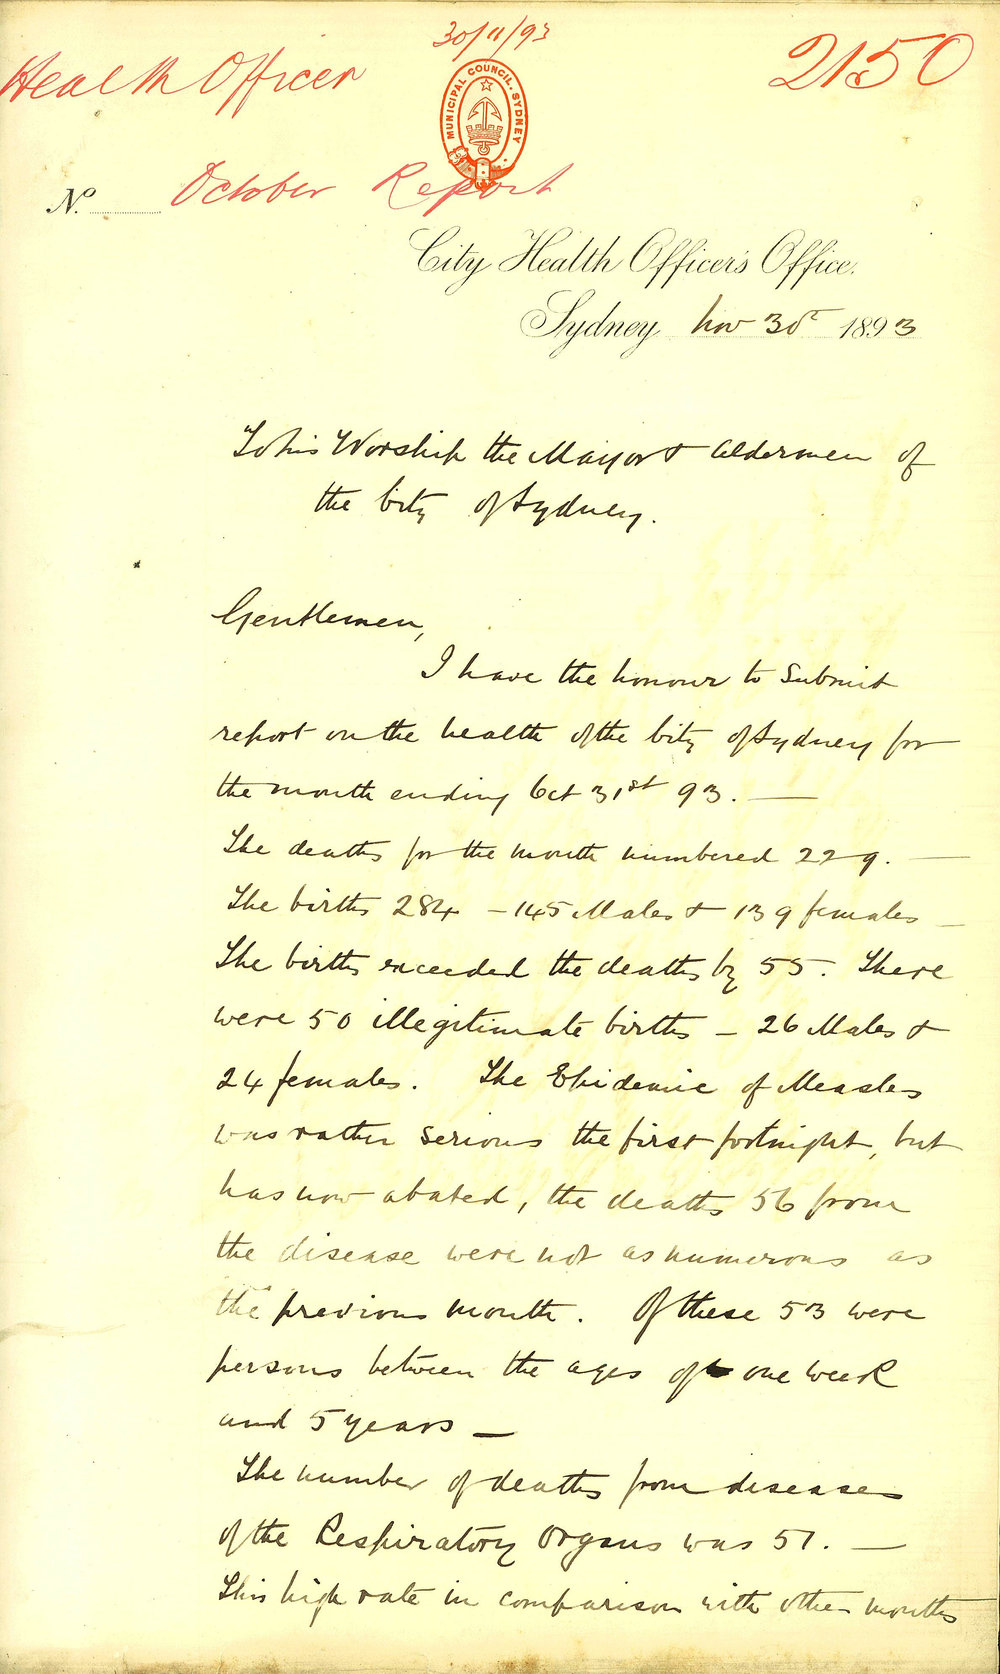 30/11/93
Health Officer
2150
MUNICIPAL COUNCIL. SYDNEY
No. October Report
City Health Officer's Office.
Sydney Nov 30th 1893
To his Worship the Mayor & Aldermen of
the City of Sydney.
Gentlemen,
I have the honour to submit
report on the health of the City of Sydney for
the month ending Oct 31st 93. —
The deaths for the month numbered 229. —
The births 284 - 145 Males & 139 females —
The births exceeded the deaths by 55. There
were 50 illegitimate births - 26 Males &
24 females. The Epidemic of Measles
was rather serious the first fortnight, but
has now abated, the deaths 56 from
the disease were not as numerous as
the previous month. Of these 53 were
persons between the ages of one week
and 5 years —
The number of deaths from diseases
of the Respiratory Organs was 51. —
This high rate in comparison with other months